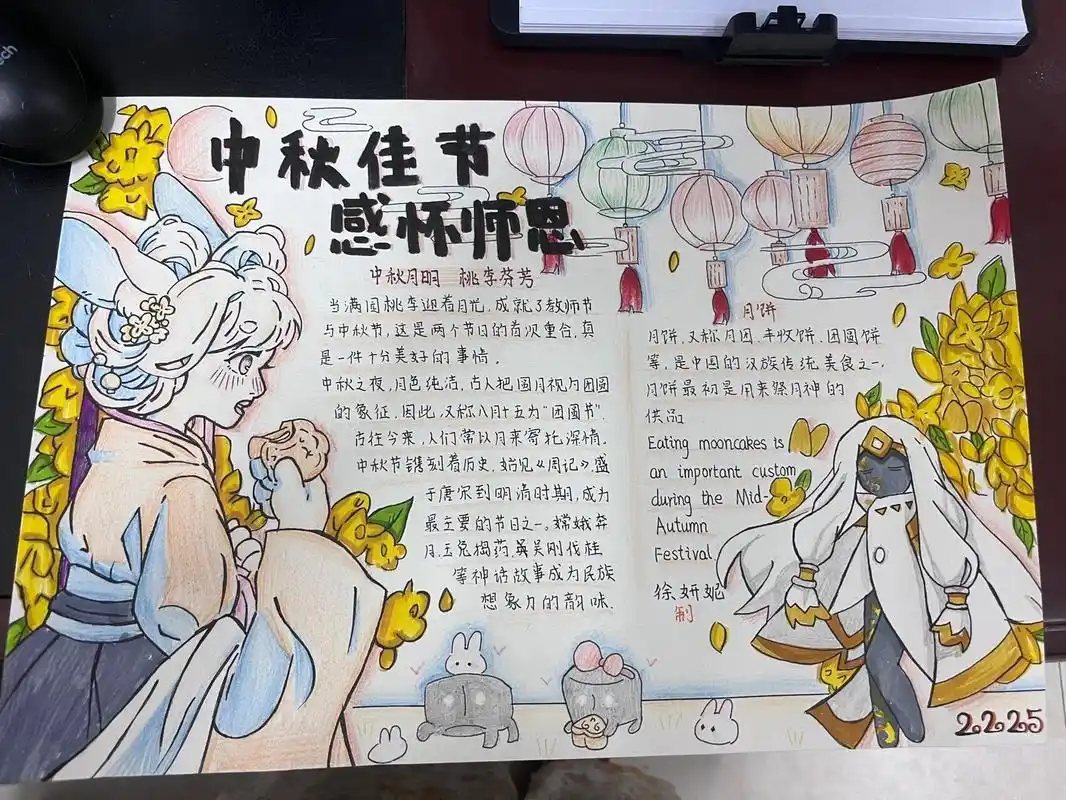 中秋佳节
感怀师恩
中秋月明 桃李芬芳
当满园桃李迎着月光,成就了教师节
与中秋节,这是两个节日的首次重合,真
是一件十分美好的事情。
中秋之夜,月色纯洁,古人把圆月视为团圆
的象征,因此,又称八月十五为“团圆节”.
古往今来,人们常以月来寄托深情。
中秋节镌刻着历史,始见《周记》,盛
于唐宋到明清时期,成为
最主要的节日之一。嫦娥奔
月、玉兔捣药、吴刚伐桂
等神话故事成为民族
想象力的韵味.
月饼
月饼,又称月团、丰收饼、团圆饼
等,是中国的汉族传统美食之一,
月饼最初是用来祭月神的
供品
Eating mooncakes is
an important custom
during the Mid-
Autumn
Festival
徐妍妮
制
2225